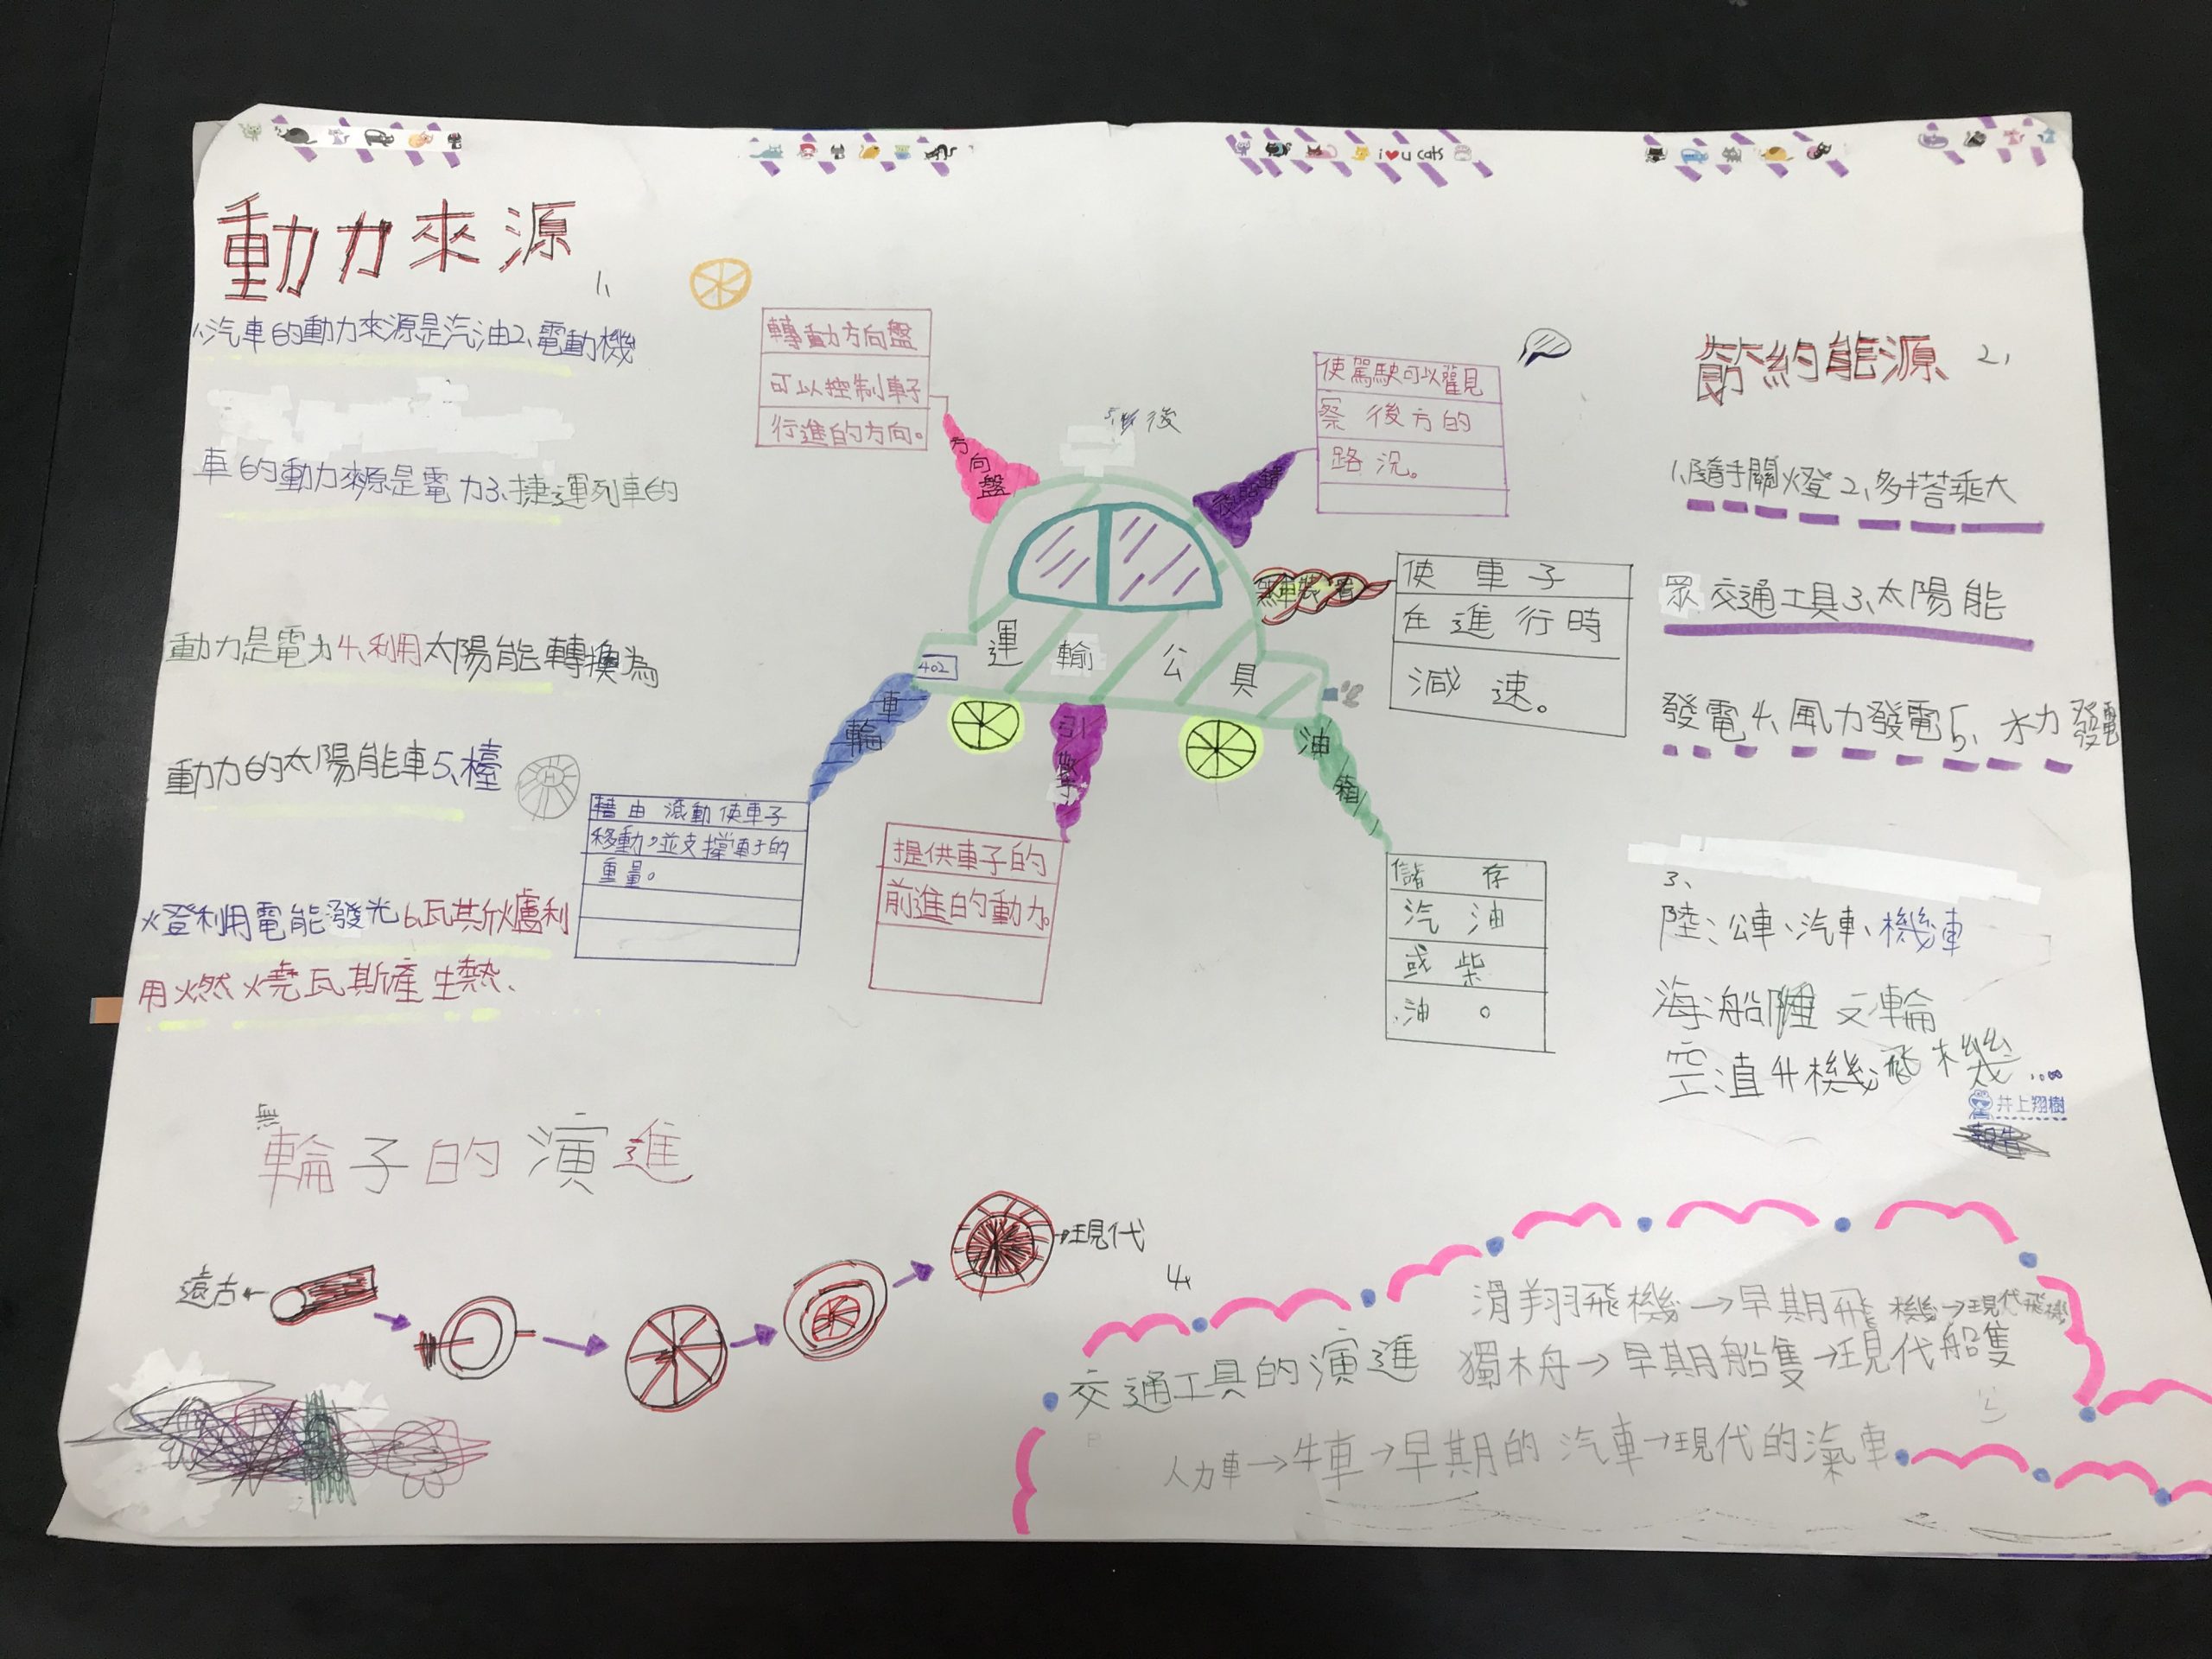 動力來源
1、
1、汽車的動力來源是汽油2、電動機
車的動力來源是電力3、捷運列車的
動力是電力4、利用太陽能轉換為
動力的太陽能車5、檯
燈利用電能發光6、瓦斯爐利
用燃燒瓦斯產生熱、
轉動方向盤
可以控制車子
行進的方向。
方向盤
後
使駕駛可以觀見
察後方的
路況。
使車子
在進行時
減速。
運輸公具
402
車輪
藉由滾動使車子
移動,並支撐車子的
重量。
引擎
提供車子的
前進的動力。
油箱
儲存
汽油
或柴
油。
節約能源
2、
1、隨手關燈2、多搭乘大
眾交通工具3、太陽能
發電4、風力發電5、水力發電
3、
陸:公車、汽車、機車
海:船
空:直升機飛機...
井上翔樹
無
輪子的演進
遠古
現代
4、
交通工具的演進
滑翔飛機→早期飛機→現代飛機
獨木舟→早期船隻→現代船隻
人力車→牛車→早期的汽車→現代的氣車